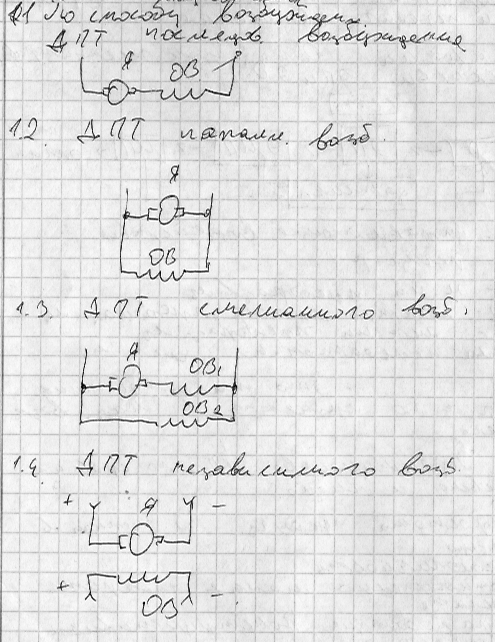 1.1 По способу возбуждения
ДПТ последов. возбуждение
Я ОВ
1.2. ДПТ паралл. возб.
Я
ОВ
1.3. ДПТ смешанного возб.
Я ОВ1
ОВ2
1.4. ДПТ независимого возб.
+ Я -
+ ОВ -